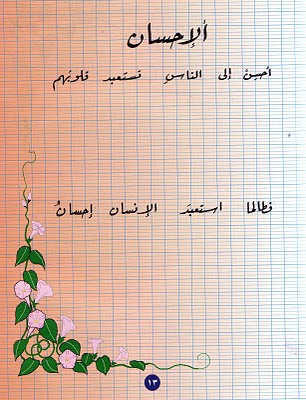 ألإحسان
أحسِنْ إلى الناسِ تستعبد قلوبَهم
فطالما استعبَد الإنسان إحسانُ
١٣